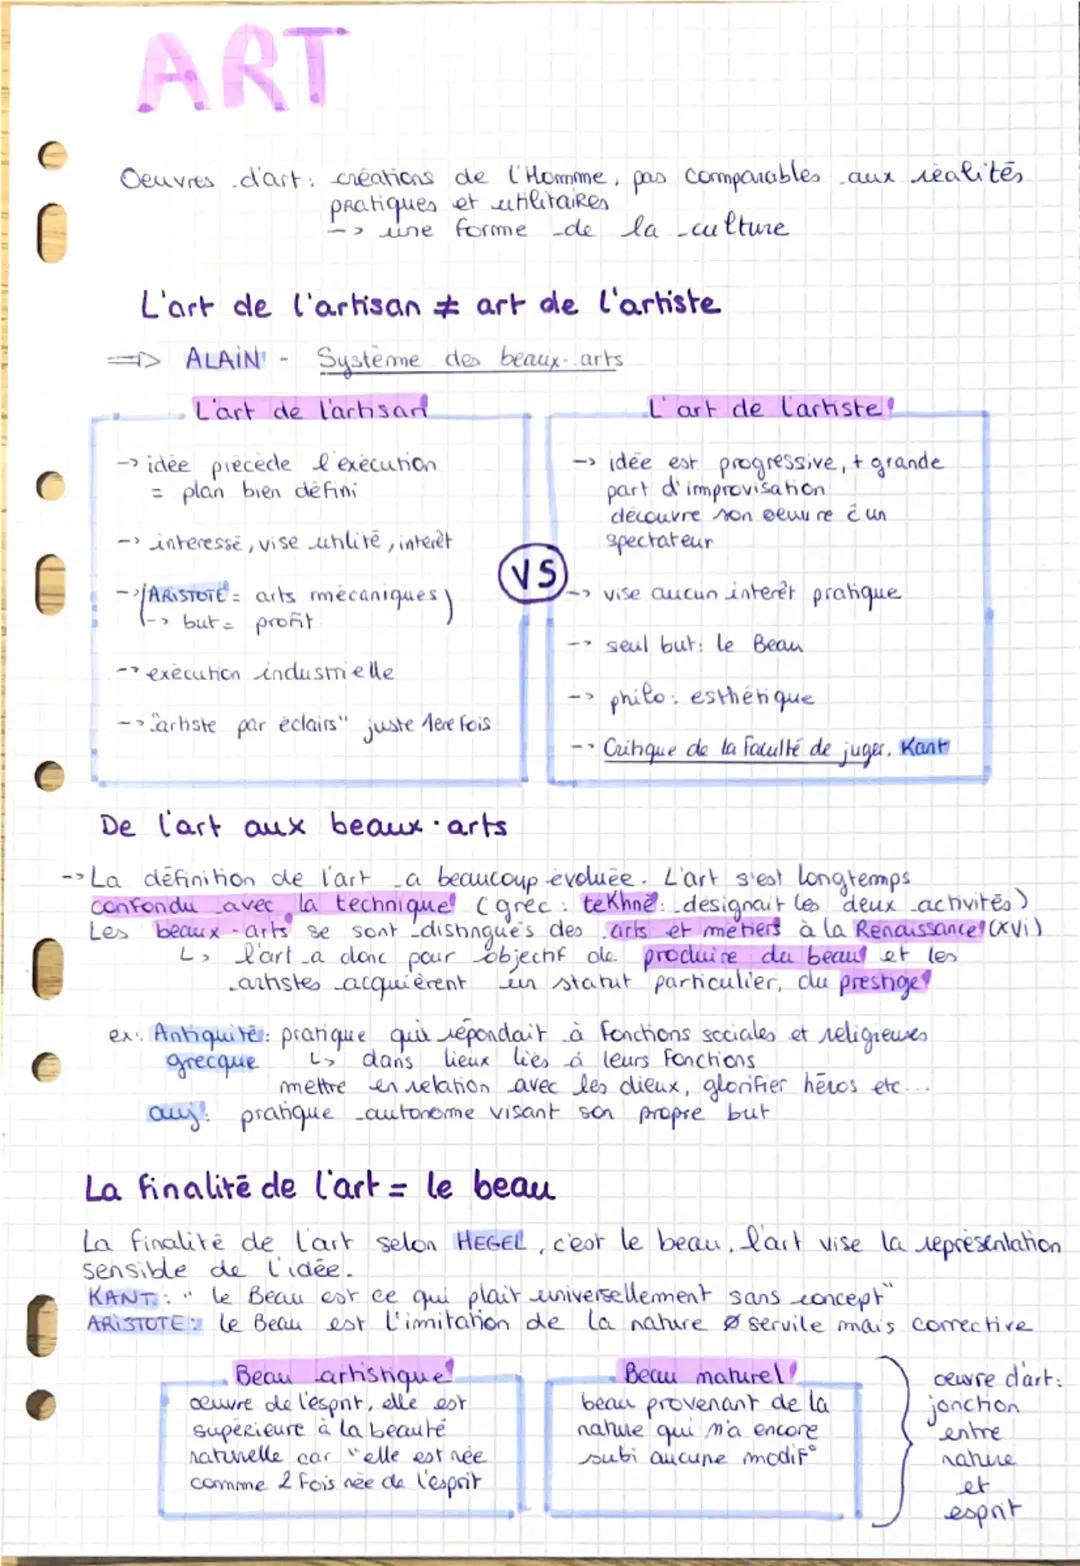 ART
Oeuvres d'art : créations de l'Homme, pas comparables aux réalités
pratiques et utilitaires
--> une forme de la culture
L'art de l'artisan ≠ art de l'artiste
=> ALAIN - Système des beaux-arts
L'art de l'artisan
-> idée précède l'exécution
= plan bien défini
-> interessé, vise utilité, interêt
-> (ARISTOTE = arts mécaniques)
-> but = profit
-> exécution industrielle
-> "artiste par éclairs" juste 1ere fois
VS
L'art de l'artiste
-> idée est progressive, + grande
part d'improvisation
découvre son oeuvre c̄ un
spectateur
-> vise aucun interêt pratique
-> seul but : le Beau
-> philo : esthétique
-> Critique de la Faculté de juger. Kant
De l'art aux beaux-arts
-> La définition de l'art a beaucoup évoluée. L'art s'est longtemps
confondu avec la technique (grec : tekhnê : désignait les deux activités)
Les beaux-arts se sont distingués des arts et métiers à la Renaissance (XVI)
↳ l'art a donc pour objectif de produire du beau et les
artistes acquièrent un statut particulier, du prestige
ex : Antiquité : pratique qui répondait à fonctions sociales et religieuses
grecque ↳ dans lieux liés à leurs fonctions
mettre en relation avec les dieux, glorifier héros etc...
auj : pratique autonome visant son propre but
La finalité de l'art = le beau
La finalité de l'art selon HEGEL, c'est le beau, l'art vise la représentation
sensible de l'idée.
KANT : " le Beau est ce qui plait universellement sans concept"
ARISTOTE : le Beau est l'imitation de la nature Ø servile mais corrective
Beau artistique
oeuvre de l'esprit, elle est
supérieure à la beauté
naturelle car "elle est née
comme 2 fois née de l'esprit
Beau naturel
beau provenant de la
nature qui n'a encore
subi aucune modif°
oeuvre d'art :
jonction
entre
nature
et
esprit